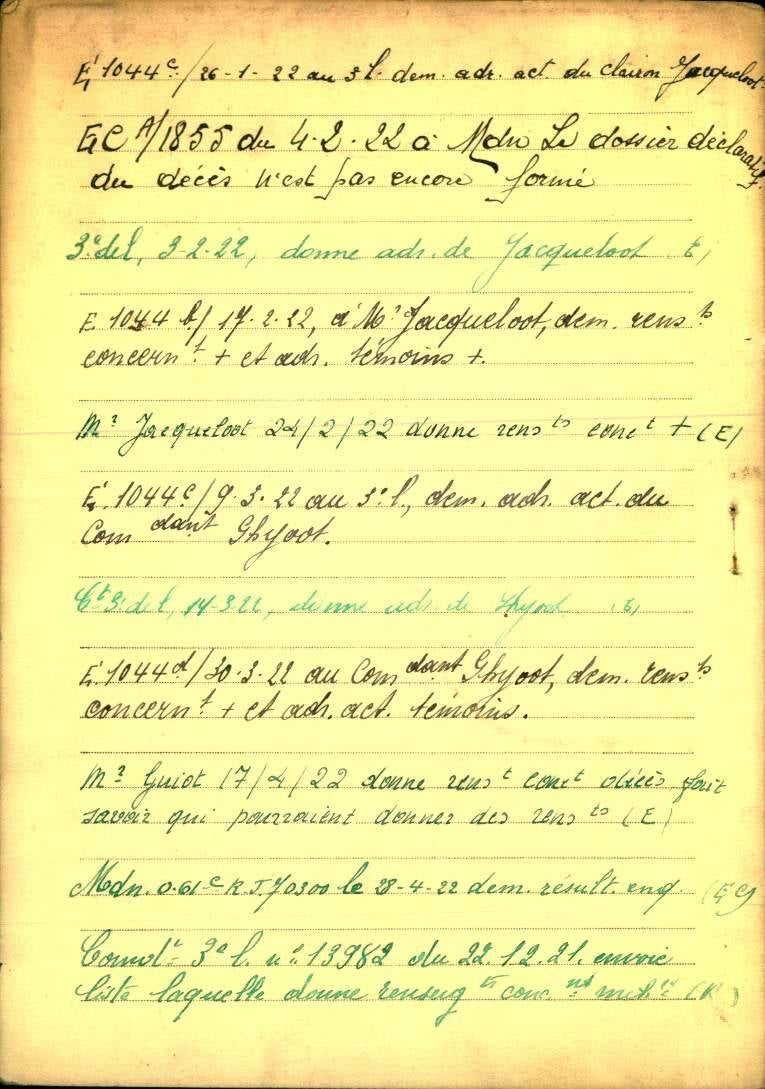 E 1044 c./26-1-22 au 3 l. dem. adr. act. du clairon Jacqueloot.
EC A/1855 du 4.2.22 à Mdn Le dossier déclaratif.
du décès n'est pas encore formé
3e de l, 3-2-22, donne adr. de Jacqueloot E)
E 1044 b/ 17.2.22, à Mr Jacqueloot, dem. rens ts
concern t + et adr. témoins +.
Mr Jacqueloot 24/2/22 donne rens ts conc t + (E)
E. 1044 c/9.3.22 au 3e l., dem. adr. act. du
Com dant Ghyoot.
Ct 3e de l, 14-3-22, donne adr. de Ghyoot (E)
E. 1044 d/30.3.22 au Com dant Ghyoot, dem. rens ts
concern t + et adr. act. témoins.
Mr Guiot 17/4/22 donne rens t conc t décès fait
savoir qui pourraient donner des rens ts (E)
Mdn. 0.61-c R.J. 70300 le 28-4-22 dem. résult. enq. (EC)
3e l. n° 13982 du 22.12.21. envoie
liste laquelle donne renseig ts conc. nt